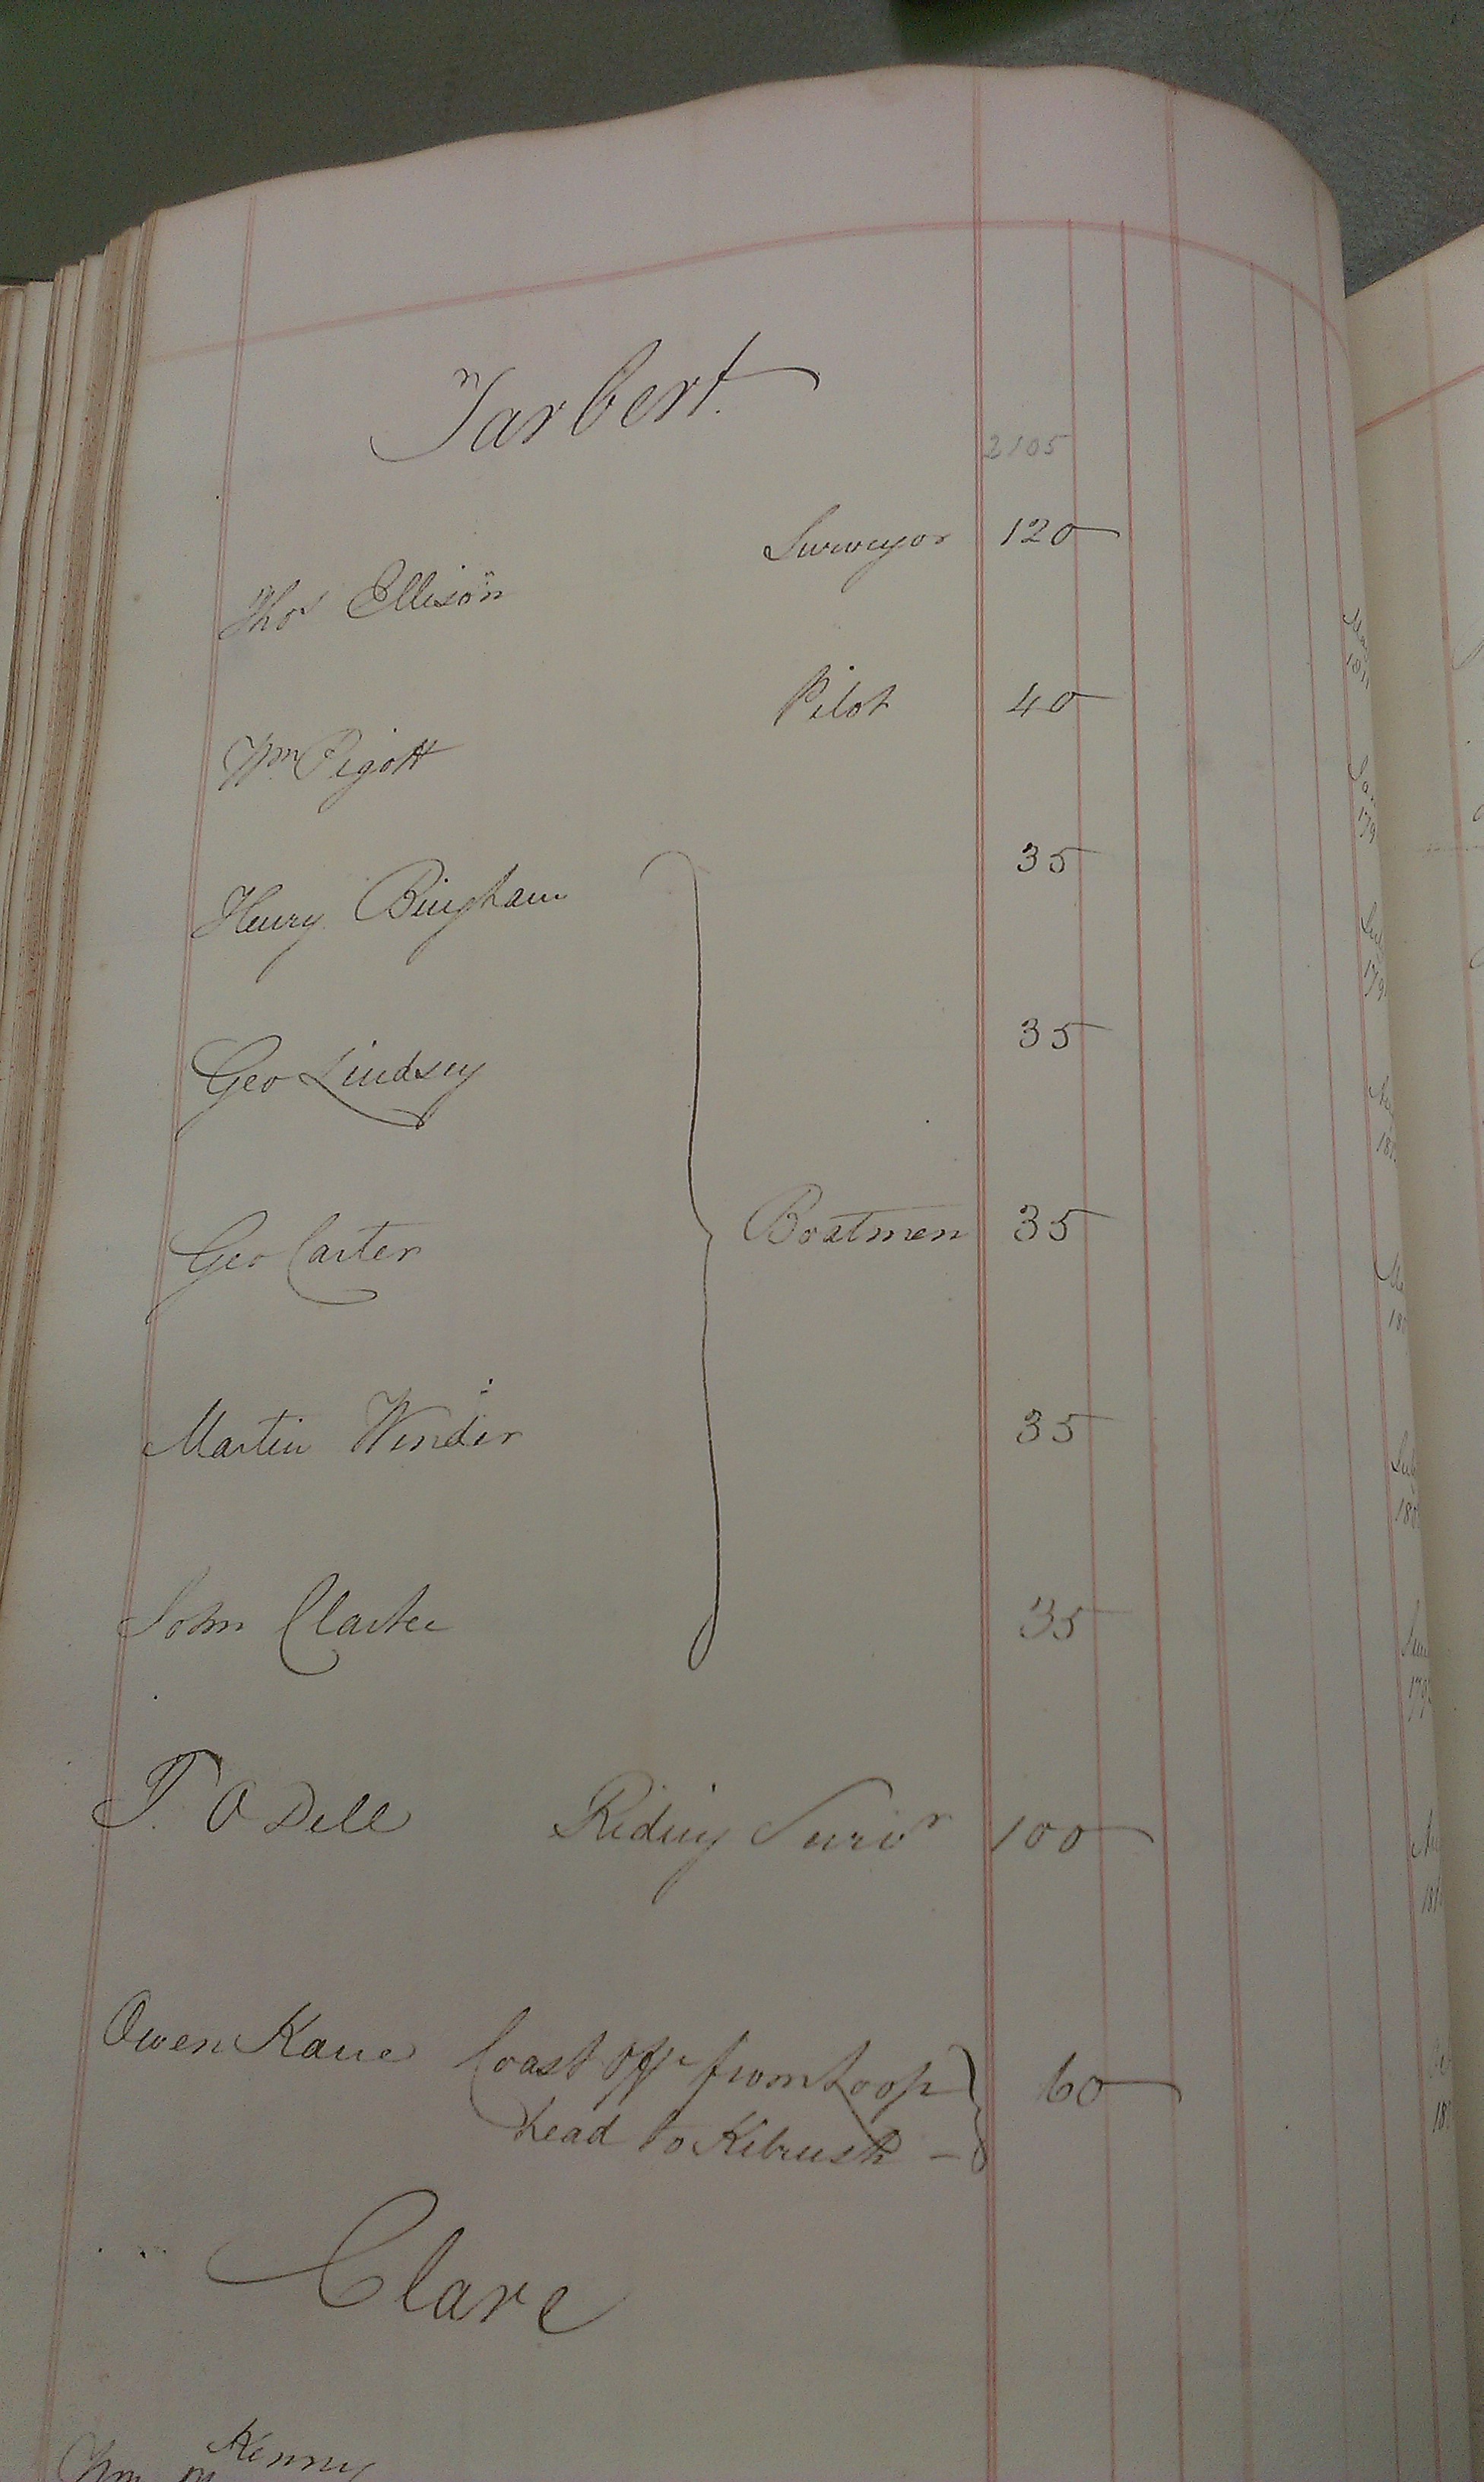 Tarbert.
2105
Surveyor 120
Thos Ellison
Pilot 40
Wm Pigott
35
Henry Bingham
35
Geo Lindsey
Boatmen 35
Geo Carter
35
Martin Winder
35
John Clarke
T. O Dell Riding Survr 100
Owen Kane Coast Offr from Loop 60
head to Kilrush -
Clare
Kenny
Wm